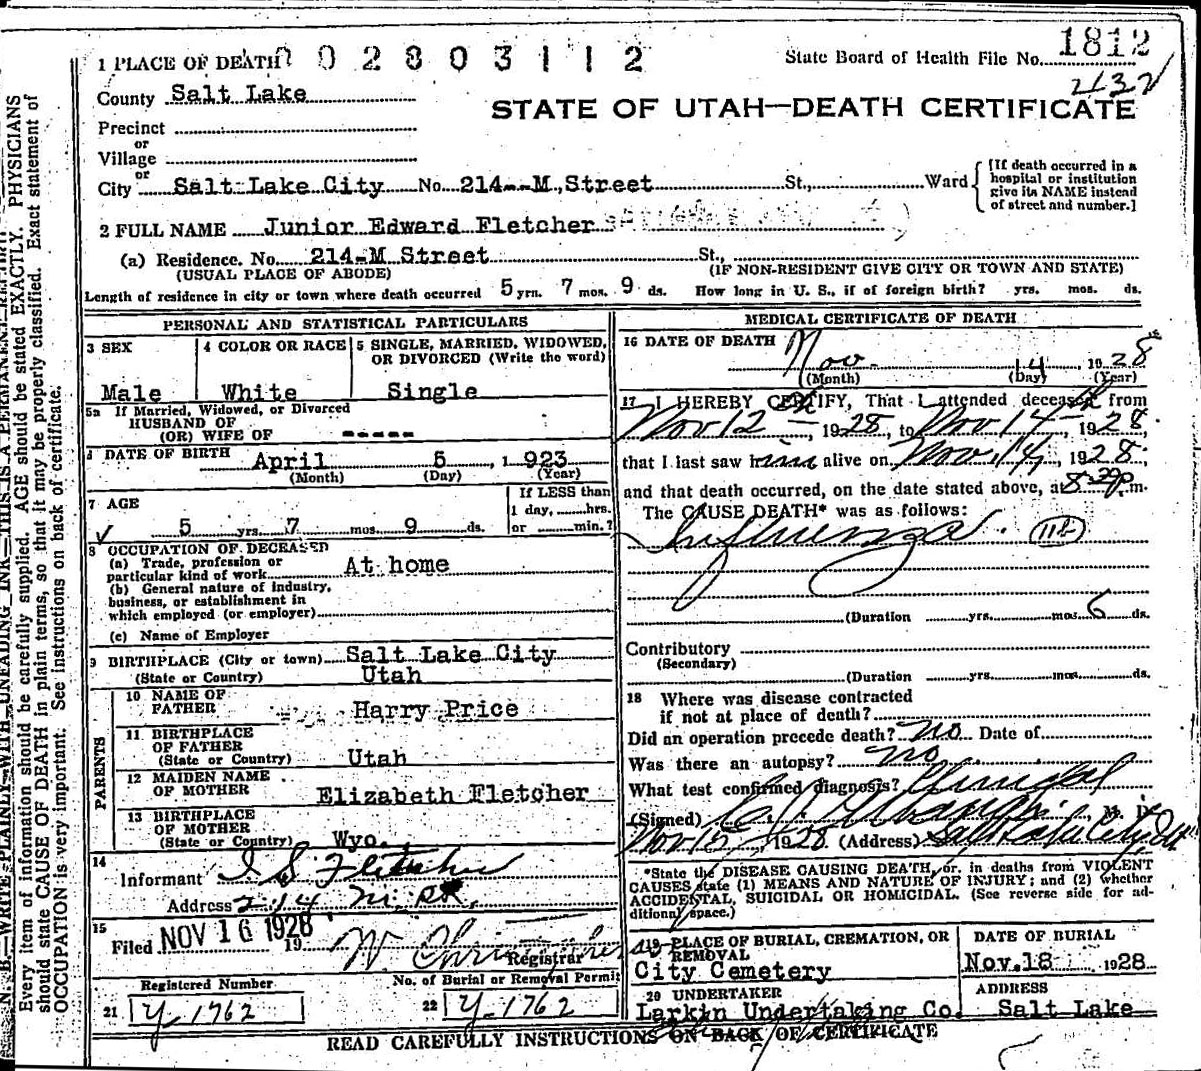 1 PLACE OF DEATH 0 0 2 8 0 3 1 1 2
State Board of Health File No. 1812
432
County Salt Lake
STATE OF UTAH—DEATH CERTIFICATE
Precinct
or
Village
or
City Salt Lake City No. 214--M.,Street St., Ward
[If death occurred in a
hospital or institution
give its NAME instead
of street and number.]
2 FULL NAME Junior Edward Fletcher
(a) Residence. No. 214-M Street St.,
(USUAL PLACE OF ABODE) (IF NON-RESIDENT GIVE CITY OR TOWN AND STATE)
Length of residence in city or town where death occurred 5 yrs. 7 mos. 9 ds. How long in U. S., if of foreign birth? yrs. mos. ds.
PERSONAL AND STATISTICAL PARTICULARS
3 SEX
Male
4 COLOR OR RACE
White
5 SINGLE, MARRIED, WIDOWED,
OR DIVORCED (Write the word)
Single
5a If Married, Widowed, or Divorced
HUSBAND OF
(OR) WIFE OF -----
DATE OF BIRTH April 5, 1923
(Month) (Day) (Year)
7 AGE
5 yrs. 7 mos. 9 ds.
If LESS than
1 day, hrs.
or min.?
8 OCCUPATION OF DECEASED
(a) Trade, profession or
particular kind of work At home
(b) General nature of industry,
business, or establishment in
which employed (or employer)
(c) Name of Employer
9 BIRTHPLACE (City or town) Salt Lake City
(State or Country) Utah
PARENTS
10 NAME OF
FATHER Harry Price
11 BIRTHPLACE
OF FATHER
(State or Country) Utah
12 MAIDEN NAME
OF MOTHER Elizabeth Fletcher
13 BIRTHPLACE
OF MOTHER
(State or Country) Wyo.
14
Informant I S Fletcher
Address 214 M. St.
15
Filed NOV 16 1928 19
Registrar
Registered Number
21 Y-1762
No. of Burial or Removal Permit
22 Y-1762
MEDICAL CERTIFICATE OF DEATH
16 DATE OF DEATH Nov. 14 1928
(Month) (Day) (Year)
17 I HEREBY CERTIFY, That I attended deceased from
Nov 12th, 1928, to Nov 14th, 1928,
that I last saw him alive on Nov. 14, 1928,
and that death occurred, on the date stated above, at 8:29 p.m.
The CAUSE DEATH* was as follows:
Influenza.
(Duration yrs. mos. 6 ds.
Contributory
(Secondary)
(Duration yrs. mos. ds.
18 Where was disease contracted
if not at place of death?
Did an operation precede death? no Date of
Was there an autopsy? no
What test confirmed diagnosis? Clinical
(Signed) M. D.
Nov 15, 1928 (Address) Salt Lake City, Ut
*State the DISEASE CAUSING DEATH, or, in deaths from VIOLENT
CAUSES state (1) MEANS AND NATURE OF INJURY; and (2) whether
ACCIDENTAL, SUICIDAL OR HOMICIDAL. (See reverse side for ad-
ditional space.)
19 PLACE OF BURIAL, CREMATION, OR
REMOVAL
City Cemetery
DATE OF BURIAL
Nov.18 1928
20 UNDERTAKER
Larkin Undertaking Co.
ADDRESS
Salt Lake
READ CAREFULLY INSTRUCTIONS ON BACK OF CERTIFICATE
N. B.—WRITE PLAINLY WITH UNFADING INK—THIS IS A PERMANENT
Every item of information should be carefully supplied. AGE should be stated EXACTLY. PHYSICIANS
should state CAUSE OF DEATH in plain terms, so that it may be properly classified. Exact statement of
OCCUPATION is very important. See instructions on back of certificate.